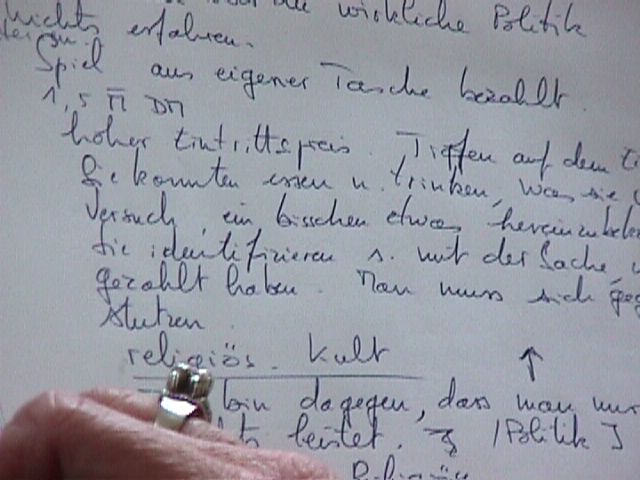 nichts wirkliche Politik
erfahren.
Spiel aus eigener Tasche bezahlt.
1,5 M DM
hoher Eintrittspreis. Tieffen auf dem
Sie konnten essen u. trinken, was sie
Versuch, ein bisschen etwas
Sie identifizieren s. mit der Sache,
gezahlt haben. Man muss sich
stutzen.
religiös. Kult ↑
bin dagegen, dass man nur
leistet. /Politik]